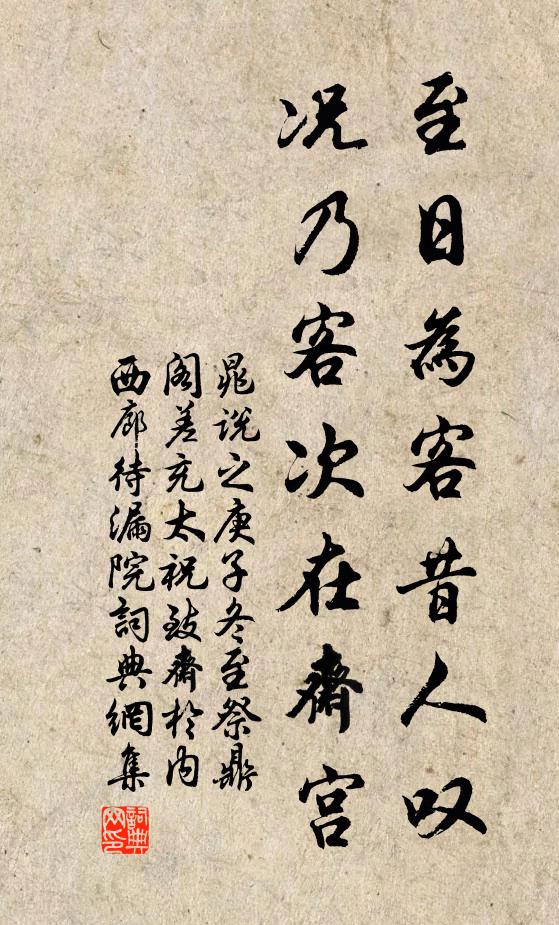 至日為客昔人叹
况乃客次在齋宫
晁说之庚子冬至祭鼎
阁差充太祝致齋於内
西廊待漏院詞典網集
詞典网印